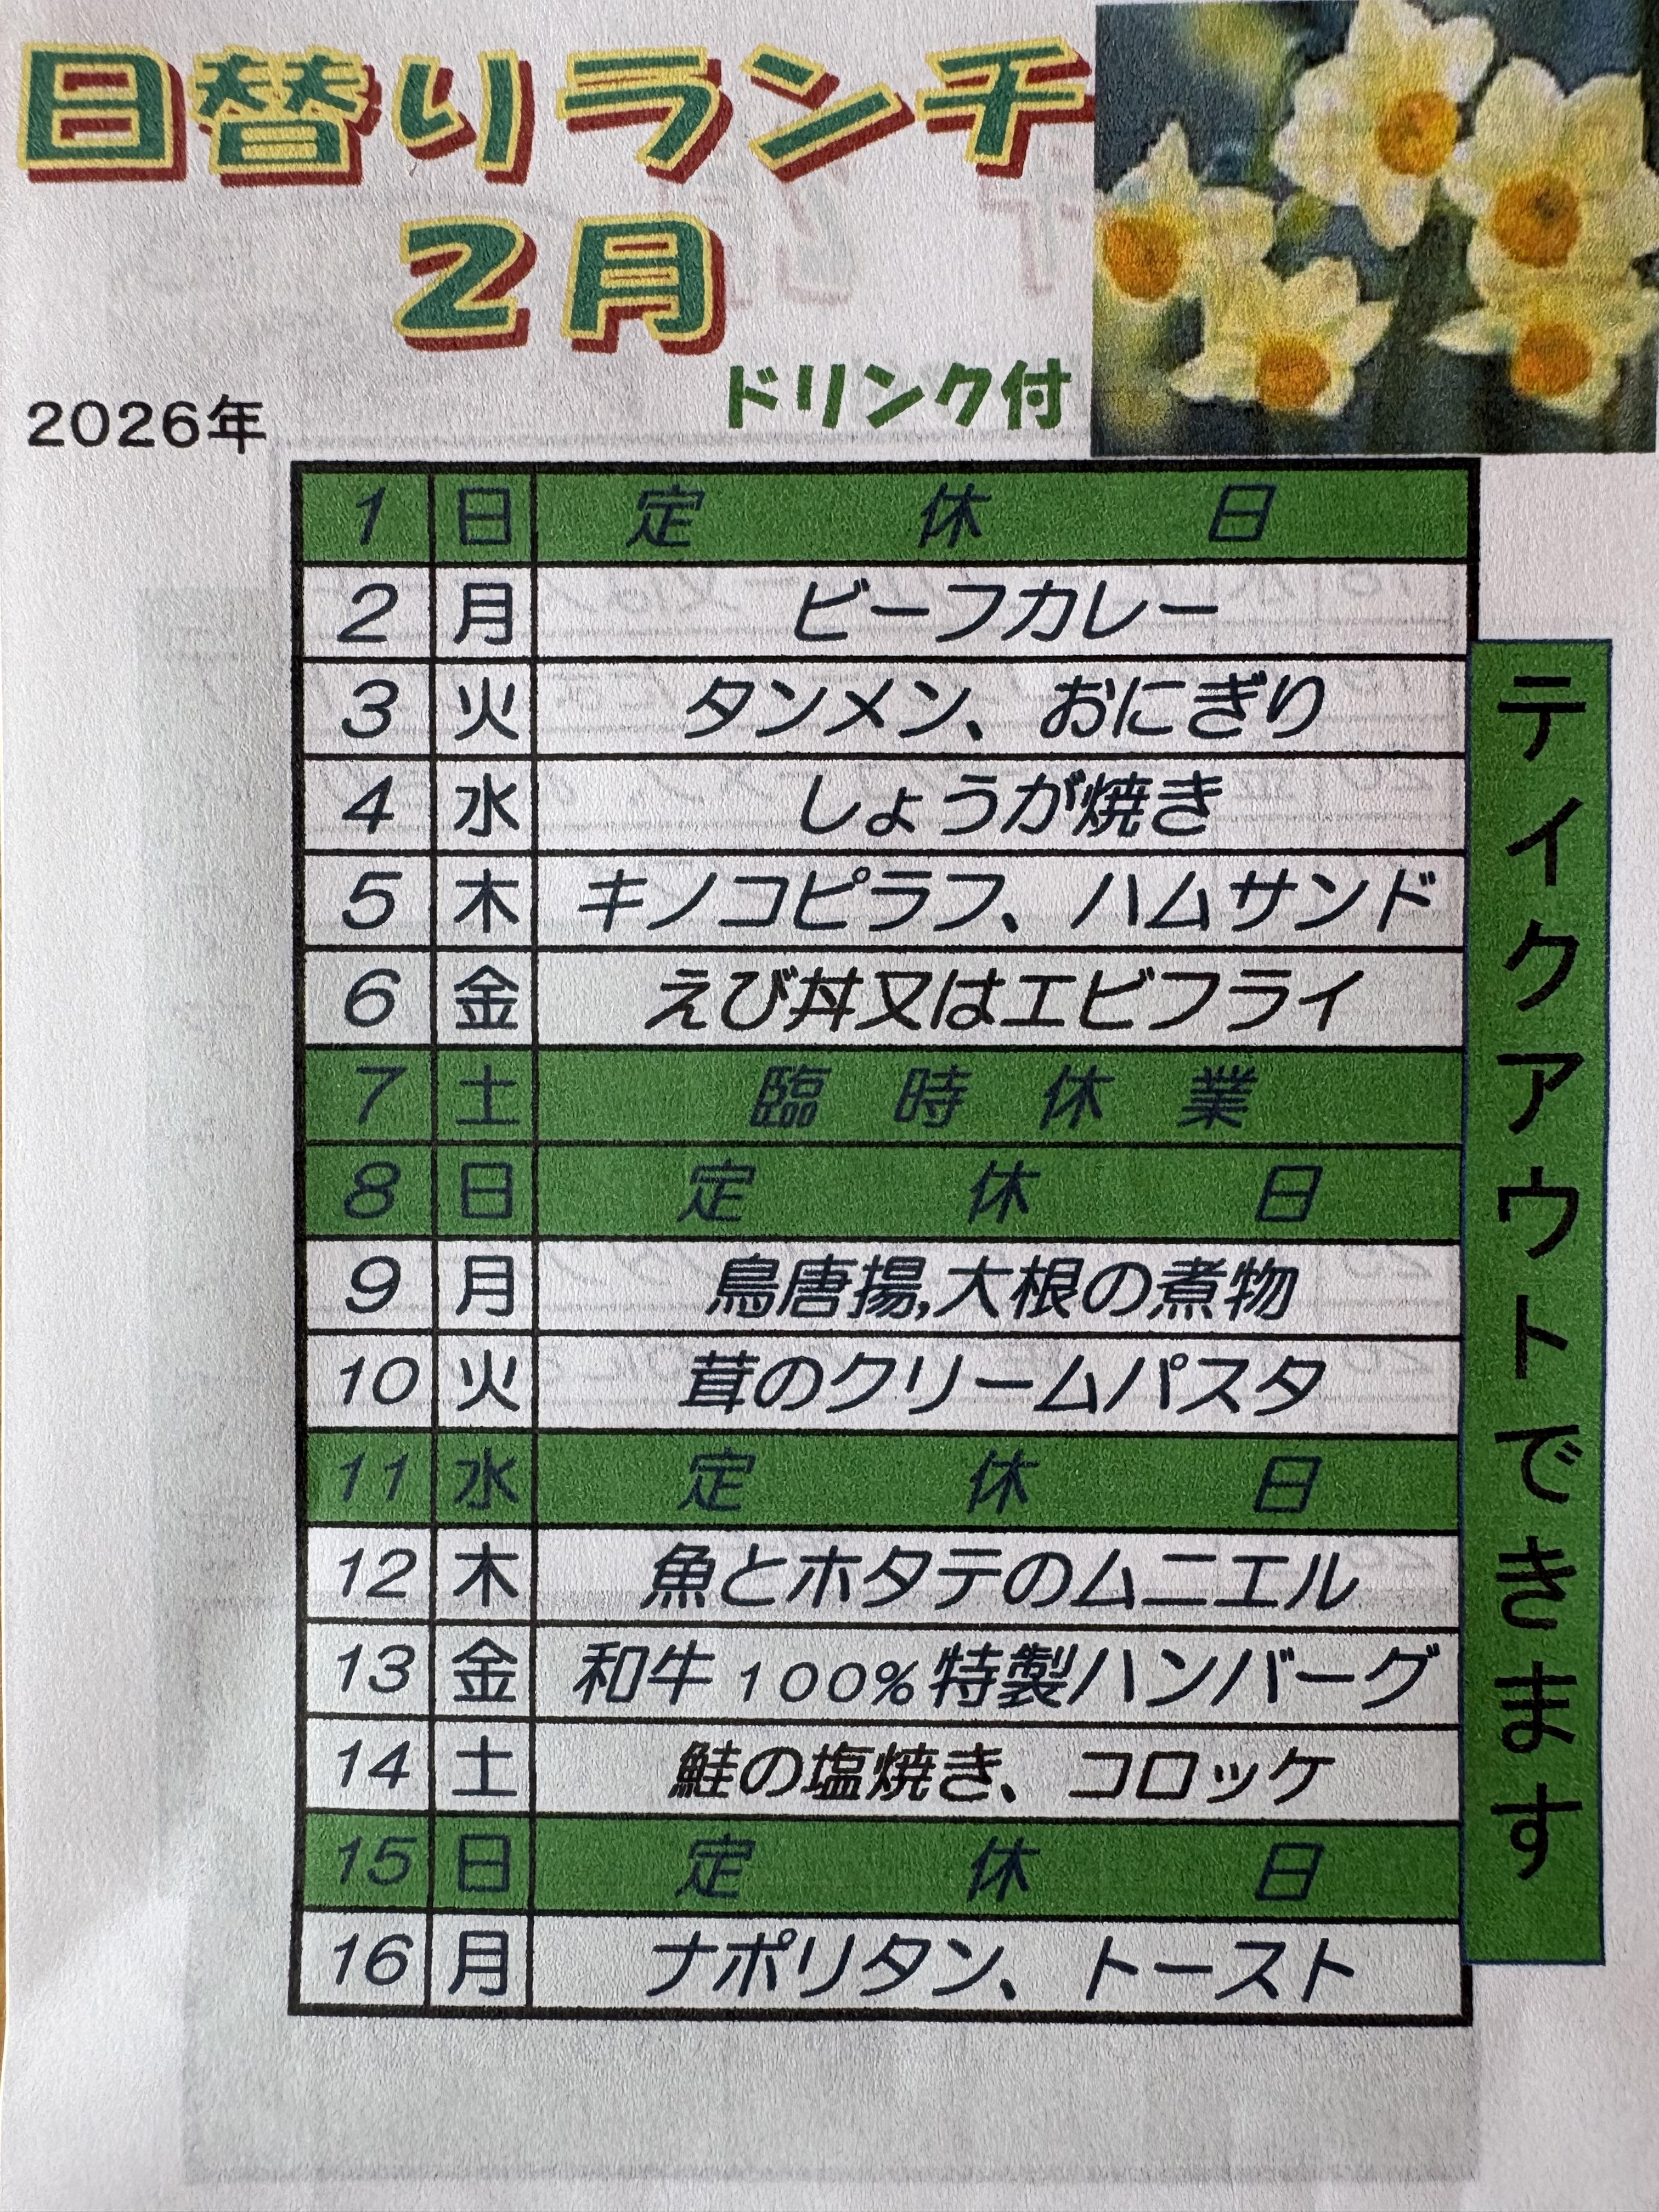 日替りランチ
2月
ドリンク付
2026年
1 日 定休日
2 月 ビーフカレー
3 火 タンメン、おにぎり
4 水 しょうが焼き
5 木 キノコピラフ、ハムサンド
6 金 えび丼又はエビフライ
7 土 臨時休業
8 日 定休日
9 月 鳥唐揚,大根の煮物
10 火 茸のクリームパスタ
11 水 定休日
12 木 魚とホタテのムニエル
13 金 和牛100%特製ハンバーグ
14 土 鮭の塩焼き、コロッケ
15 日 定休日
16 月 ナポリタン、トースト
テイクアウトできます